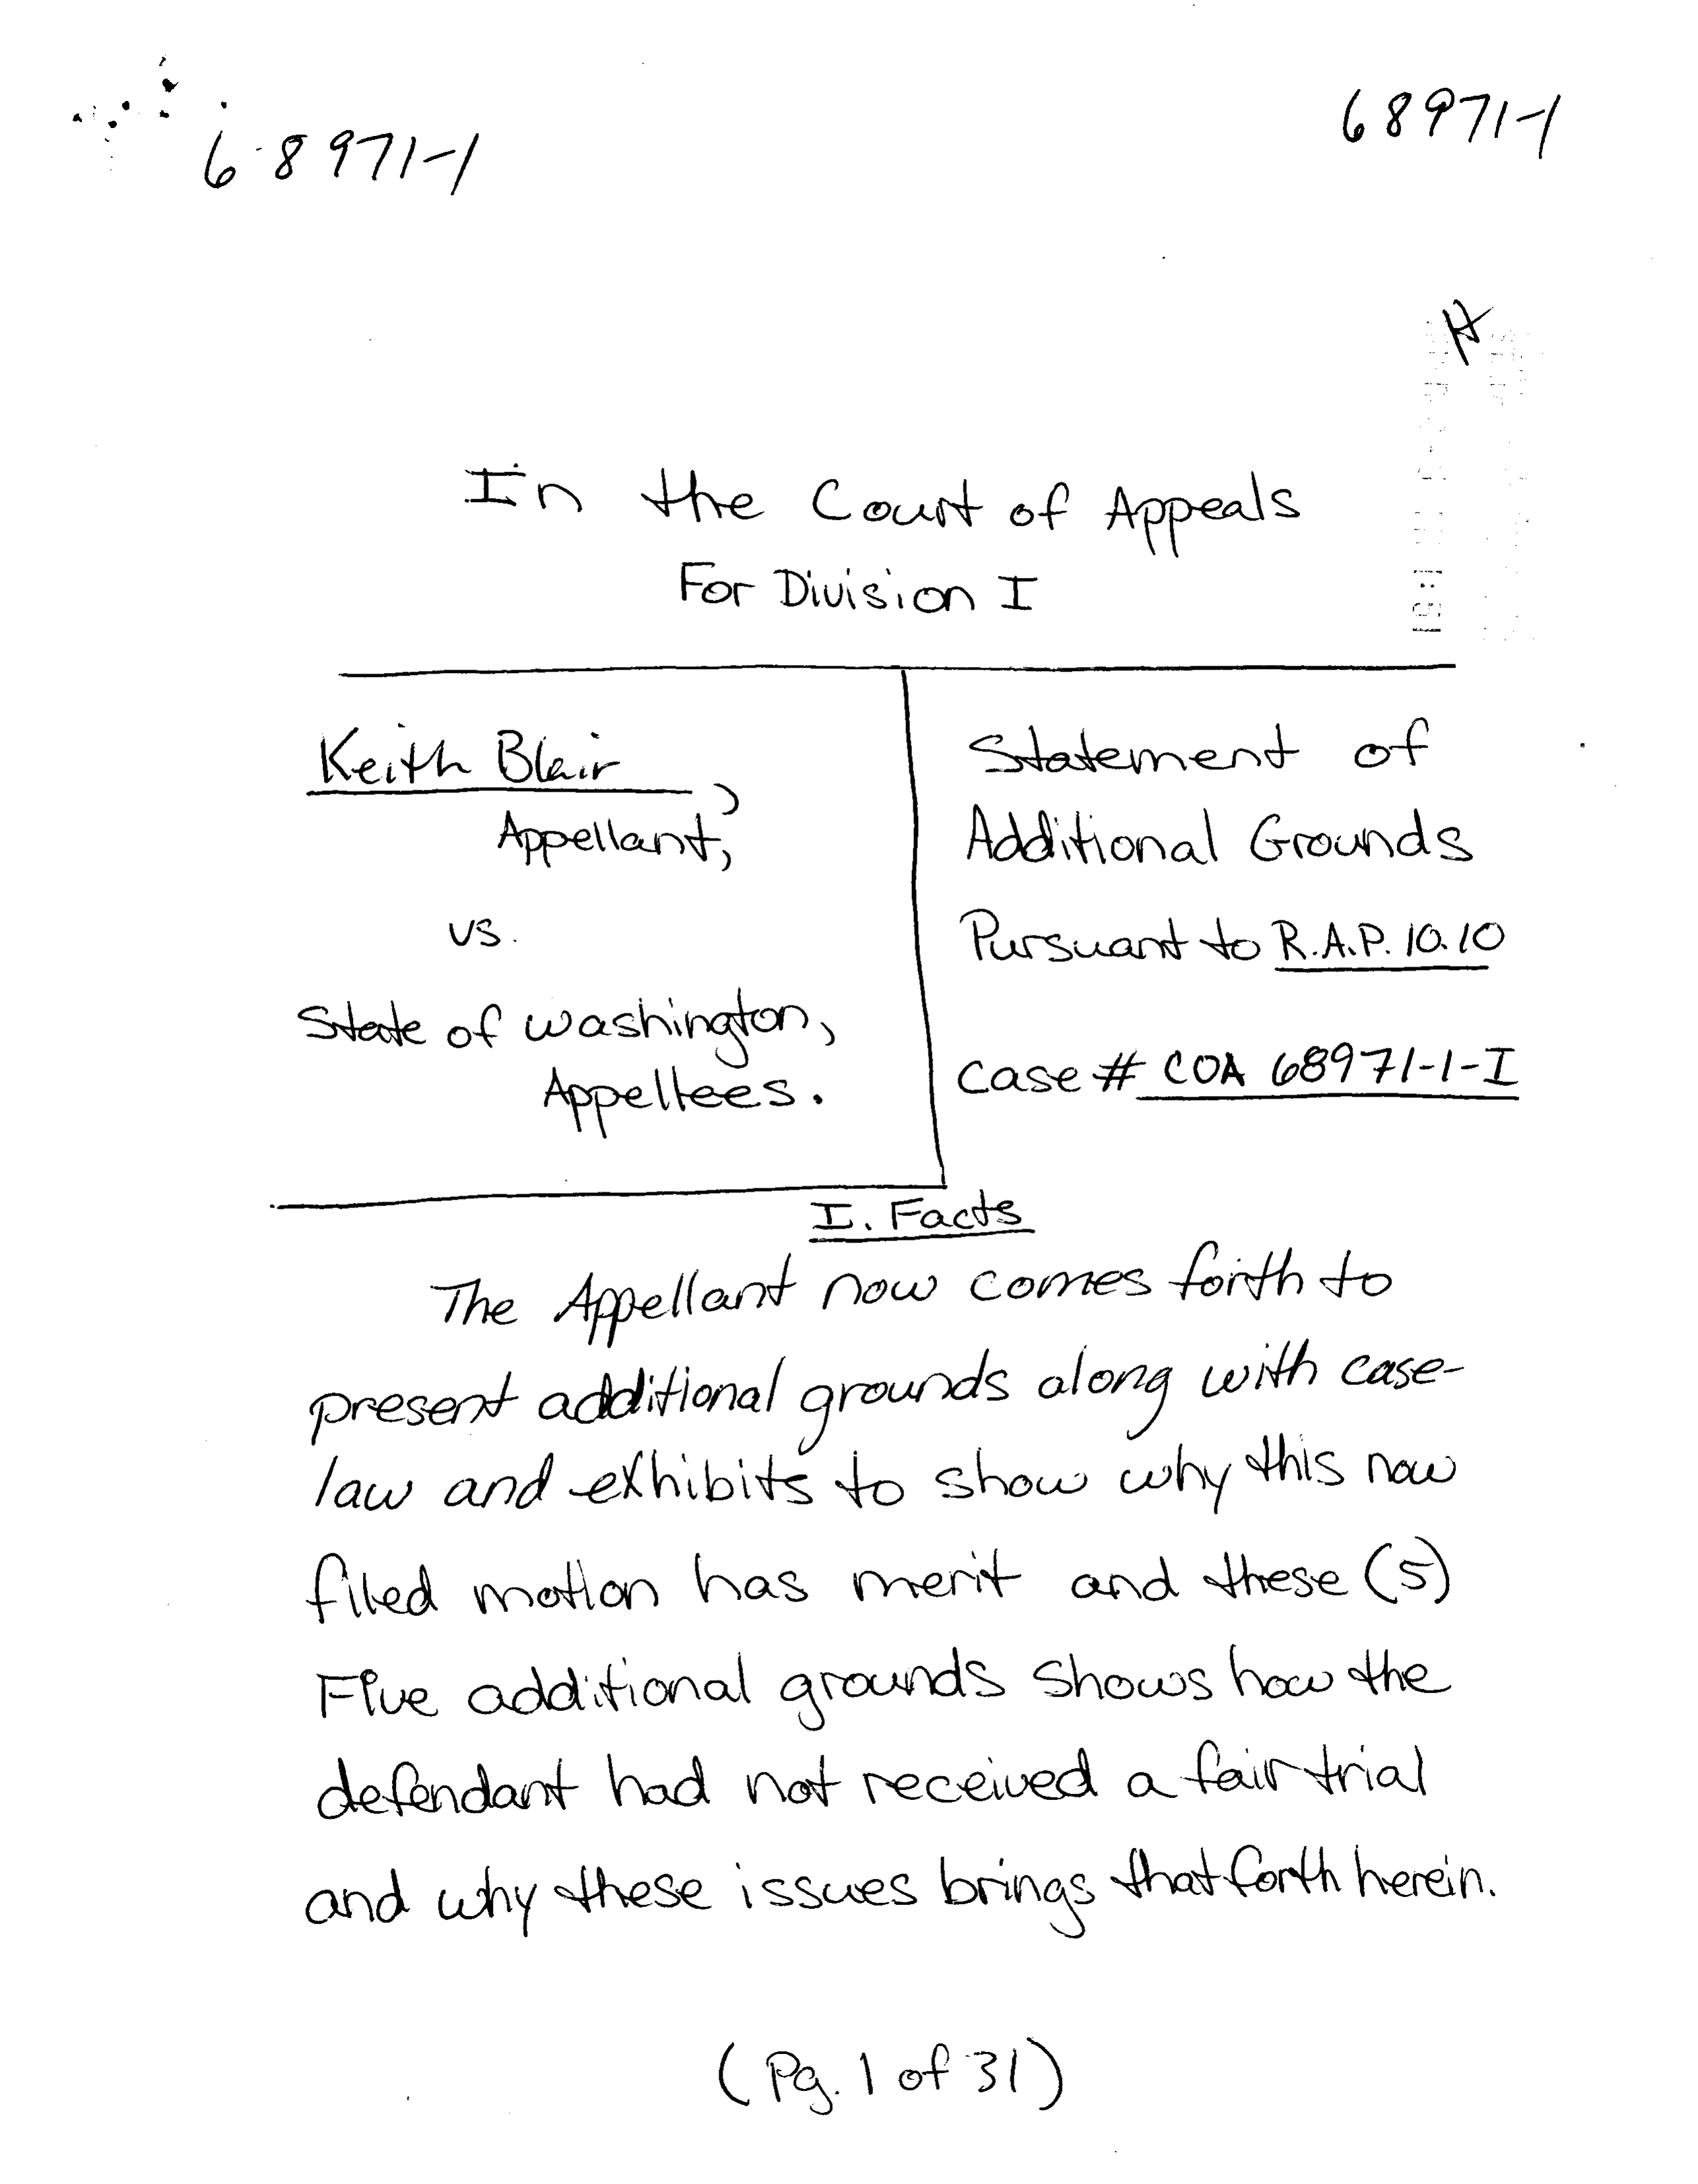 68971-1
68971-1
In the Court of Appeals
For Division I
Keith Blair,
Appellant,
vs.
State of Washington,
Appeltees.
Statement of
Additional Grounds
Pursuant to R.A.P. 10.10
Case # COA 68971-1-I
I. Facts
The Appellant now comes forth to
present additional grounds along with case-
law and exhibits to show why this now
filed motion has merit and these (5)
Five additional grounds shows how the
defendant had not received a fair trial
and why these issues brings that forth herein.
(Pg. 1 of 31)